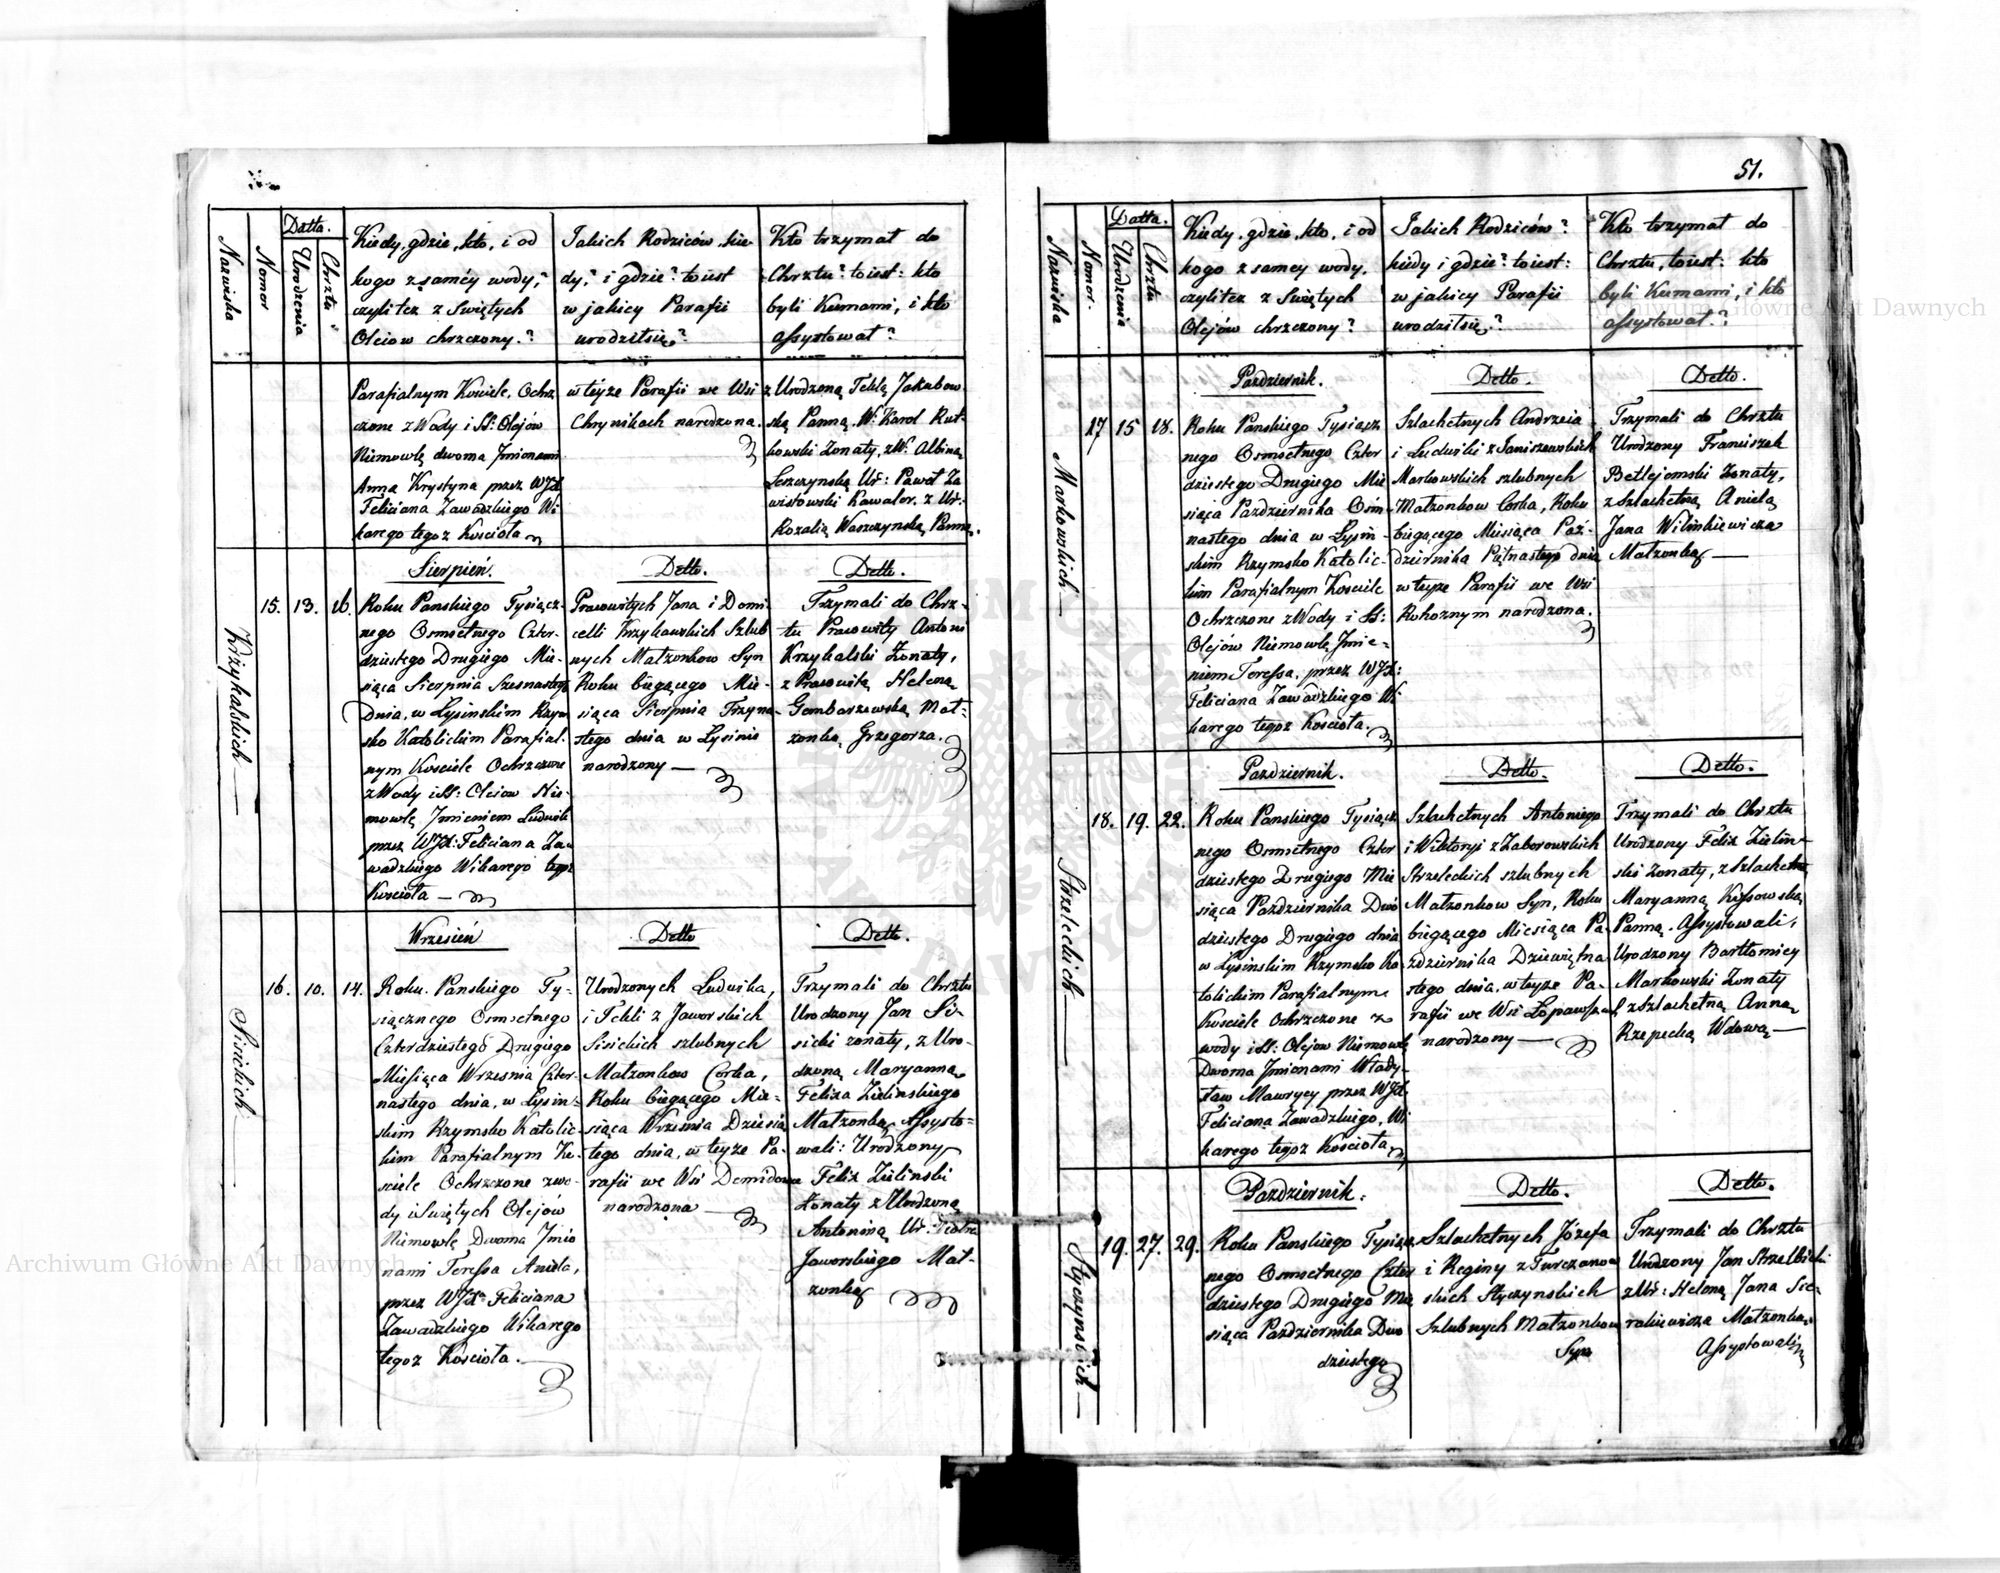 Nazwiska
Nomor
Datta.
Urodzenia
Chrztu
Kiedy, gdzie, kto, i od
kogo z samćy wody,
czyli tez z Swiętych
Oleiow chrzczony.?
Jakich Rodziców, kie-
dy? i gdzie? to iest
w jakiey Parafii
urodziłsię?
Kto trzymał do
Chrztu? to iest: kto
byli Kumami, i kto
assystował?
Parafialnym Kościele, Ochrz
czone z Wody i SS: Olejów
Niemowlę dwoma Jmionami
Anna Krystyna przez WJX
Feliciana Zawadzkiego Wi
karego tegoz Kościoła
w teyze Parafii we Wsi
Chrynikach narodzona.
z Urodzoną Teklą Jakubow
ską Panną. W: Karol Rut-
kowski Zonaty, z W. Albiną
Leszczynską Ur: Paweł Za
wistowski Kawaler. z Ur:
Rozalią Waszczynską Panną.
Sierpień.
Detto.
Detto.
Krzykalskich
15.
13.
16.
Roku Panskiego Tysiącz-
nego Osmsetnego Czter-
dziestego Drugiego Mie-
siąca Sierpnia Szesnastego
Dnia, w Łysinskim Rzym
sko Katolickim Parafial-
nym Kosciele Ochrzczone
z Wody i SS: Oleiow Nie-
mowlę Jmieniem Ludwik
przez WJX: Feliciana Za-
wadzkiego Wikarego tegoz
Kościoła
Pracowitych Jana i Domi
celli Krzykawskich Szlub
nych Małzonkow Syn
Roku biegącego Mie-
siąca Sierpnia Trzyna-
stego dnia w Łysinie
narodzony
Trzymali do Chrz-
tu Pracowity Antoni
Krzykalski Zonaty,
z Pracowitą Heleną
Gombarzewską Mał-
zonką Grzegorza.
Wrzesień
Detto
Detto.
Sisickich
16.
10.
14.
Roku Panskiego Ty-
siącznego Osmsetnego
Czterdziestego Drugiego
Miesiąca Wrzesnia Czter-
nastego dnia, w Łysin-
skim Rzymsko Katolic-
kim Parafialnym Ko-
sciele Ochrzczone z wo-
dy i Swiętych Olejów
Niemowlę Dwoma Jmio
nami Teressa Aniela,
przez WJX Feliciana
Zawadzkiego Wikarego
tegoz Kościoła.
Urodzonych Ludwika,
i Tekli z Jaworskich
Sisickich szlubnych
Małzonkow Corka,
Roku biegącego Mie-
siąca Wrzesnia Dziesią
tego dnia, w teyze Pa-
rafii we Wsi Demidowce
narodzona
Trzymali do Chrztu
Urodzony Jan Si-
sicki zonaty, z Uro-
dzoną Maryanną
Felixa Zielinskiego
Małzonką Assysto-
wali: Urodzony
Felix Zielinski
Zonaty z Urodzoną
Antoniną Ur: Piotra
Jaworskiego Mał-
zonką
51.
Nazwiska
Nomor.
Datta.
Urodzenia
Chrztu
Kiedy, gdzie, kto, i od
kogo z samey wody,
czyli tez z Swiętych
Olejów chrzczony?
Jakich Rodziców?
kiedy i gdzie? to iest:
w jakiey Parafii
urodziłsię?
Kto trzymał do
Chrztu, to iest: kto
byli Kumami, i kto
assystował?
Pazdziernik.
Detto.
Detto.
Markowskich
17
15
18.
Roku Panskiego Tysiącz
nego Osmsetnego Czter
dziestego Drugiego Mie
siąca Pazdziernika Osm-
nastego dnia w Łysin-
skim Rzymsko Katolic-
kim Parafialnym Kosciele
Ochrzczone z Wody i SS:
Olejów Niemowlę Jmie-
niem Teressa, przez WJX:
Feliciana Zawadzkiego Wi
karego tegoz Kościoła.
Szlachetnych Andrzeia
i Ludwiki z Janiszewskich
Markowskich szlubnych
Małzonkow Corka, Roku
biegącego Miesiąca Paź-
dziernika Piętnastego dnia
w teyze Parafii we Wsi
Rohoznym narodzona.
Trzymali do Chrztu
Urodzony Franciszek
Betlejemski Zonaty,
z Szlachetną Anielą
Jana Wilinkiewicza
Małzonką
Pazdziernik.
Detto.
Detto.
Strzeleckich
18.
19.
22.
Roku Panskiego Tysiącz
nego Osmsetnego Czter
dziestego Drugiego Mie
siąca Pazdziernika Dwó
dziestego Drugiego dnia
w Łysinskim Rzymsko Ka-
tolickim Parafialnym
Kosciele Ochrzczone z
wody i SS: Olejow Niemowlę
Dwoma Jmionami Włady-
sław Maurycy przez WJX
Feliciana Zawadzkiego, Wi
karego tegoz Kościoła
Szlachetnych Antoniego
i Wiktoryi z Zaborowskich
Strzeleckich szlubnych
Małzonkow Syn, Roku
biegącego Miesiąca Pa-
zdziernika Dziewiętna
stego dnia, w teyze Pa-
rafii we Wsi Łopawszach
narodzony
Trzymali do Chrztu
Urodzony Felix Zielin-
ski Zonaty, z Szlachetną
Maryanną Kossowską
Panną. Assystowali;
Urodzony Bartłomiey
Markowski Zonaty
z Szlachetną Anną
Rzepecką Wdową
Pazdziernik.
Detto.
Detto.
Styczynskich
19.
27.
29.
Roku Panskiego Tysiącz
nego Osmsetnego Czter
dziestego Drugiego Mie
siąca Pazdziernika Dwo
dziestego
Szlachetnych Józefa
i Reginy z Turczanow
skich Styczynskich
Szlubnych Małzonkow
Syn
Trzymali do Chrztu
Urodzony Jan Strzelbicki
z Ur: Heleną Jana Sie-
rakiewicza Małzonką.
Assystowali
Archiwum Główne Akt Dawnych
Archiwum Główne Akt Dawnych